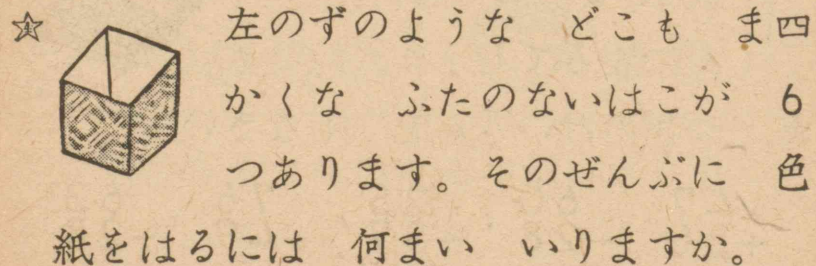 左のずのような どこも ま四
かくな ふたのないはこが 6
つあります。そのぜんぶに 色
紙をはるには 何まい いりますか。